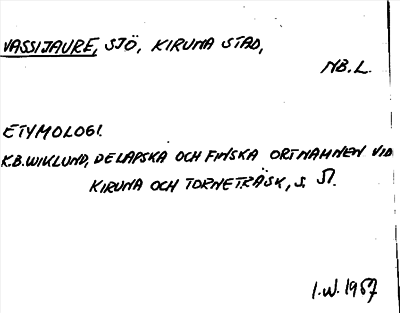 VASSIJAURE, SJÖ, KIRUNA STAD,
NB. L.
ETYMOLOGI.
K.B. WIKLUND, DE LAPSKA OCH FINSKA ORTNAMNEN VID
KIRUNA OCH TORNETRÄSK, S. 51.
I.W. 1967